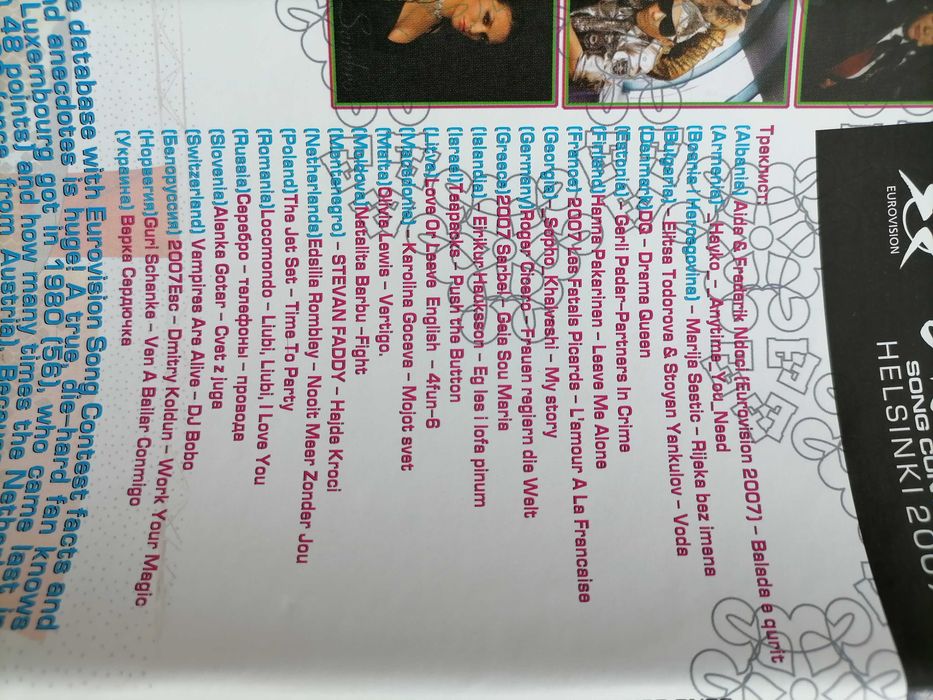 EUROVISION
SONG CON
HELSINKI 2007
Треклист:
(Albania) Aida & Frederik Ndoci (Eurovision 2007) - Balada e gurit
(Armenia) _ Hayko_-_Anytime_You_Need
(Bosnia i Hercegovina) - Marija Sestic - Rijeka bez imena
(Bulgaria) - Elitsa Todorova & Stoyan Yankulov - Voda
(Denmark) DQ - Drama Queen
(Estonia) - Gerli Padar-Partners In Crime
(Finland) Hanna Pakarinen - Leave Me Alone
(France) 2007 Les Fatals Picards - L'amour A La Francaise
(Georgia) _ Sopho_Khalvashi - My story
(Germany) Roger Cicero - Frauen regiern die Welt
(Greece) 2007 Sarbel - Gea Sou Maria
(Islandia) _ Eirikur Hauksson - Eg les i lofa pinum
(Israel) Teapacks - Push the Button
(Litva) Love Of Leave English - 4fun-6
(Macedonia) - Karolina Goceva - Mojot svet
(Malta) Olivia Lewis - Vertigo,
(Moldova) Natalita Barbu -Fight
(Montenegro) - STEVAN FADDY - Hajde Kroci
(Netherlands) Edsilia Rombley - Nooit Meer Zonder Jou
(Poland) The Jet Set - Time To Party
(Romania) Locomondo - Liubi, Liubi, I Love You
(Russia) Серебро - телефоны - провода
(Slovenia) Alenka Gotar - Cvet z juga
(Switzerland) Vampires Are Alive - DJ Bobo
(Белоруссия) 2007 Esc - Dmitry Koldun - Work Your Magic
(Норвегия) Guri Schanke - Ven A Bailar Conmigo
(Украина) Верка Сердючка
e database with Eurovision Song Contest facts and
nd anecdotes is huge! A true, die-hard fan knows
Luxembourg got in 1980 (56), who came last in
48 points) and how many times the Neth
from Austria). Becau